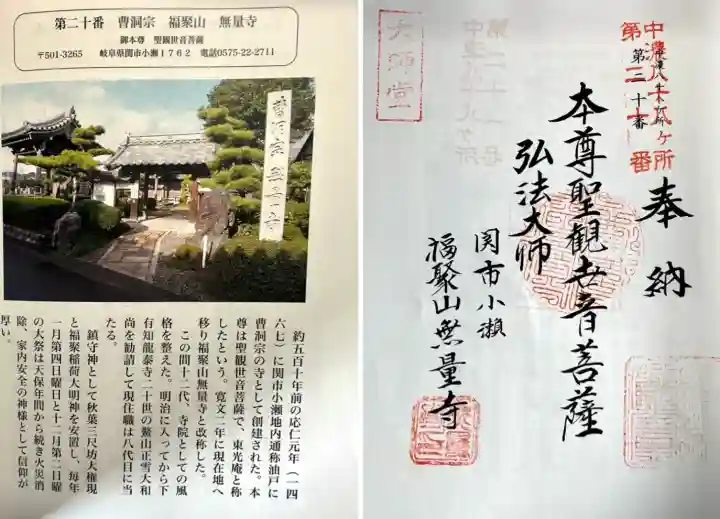 第二十番　曹洞宗　福聚山　無量寺
御本尊　聖観世音菩薩
〒501-3265　岐阜県関市小瀬１７６２　電話0575-22-2711
曹洞宗 無量寺
約五百十年前の応仁元年（一四
六七）に関市小瀬地内通称油戸に
曹洞宗の寺として創建された。本
尊は聖観世音菩薩で、東光庵と称
したという。寛文二年に現在地へ
移り福聚山無量寺と改称した。
この間十二代、寺院としての風
格を整えた。明治に入ってから下
有知龍泰寺二十世の鷲山正雪大和
尚を勧請して現住職は八代目に当
たる。
鎮守神として秋葉三尺坊大権現
と福聚稲荷大明神を安置し、毎年
一月第四日曜日と十二月第二日曜
の大祭は天保年間から続き火災消
除、家内安全の神様として信仰が
厚い。
中濃八十八ヶ所
第二十番
第二十番
奉納
本尊聖観世音菩薩
弘法大师
関市小瀬
福聚山無量寺
大師堂